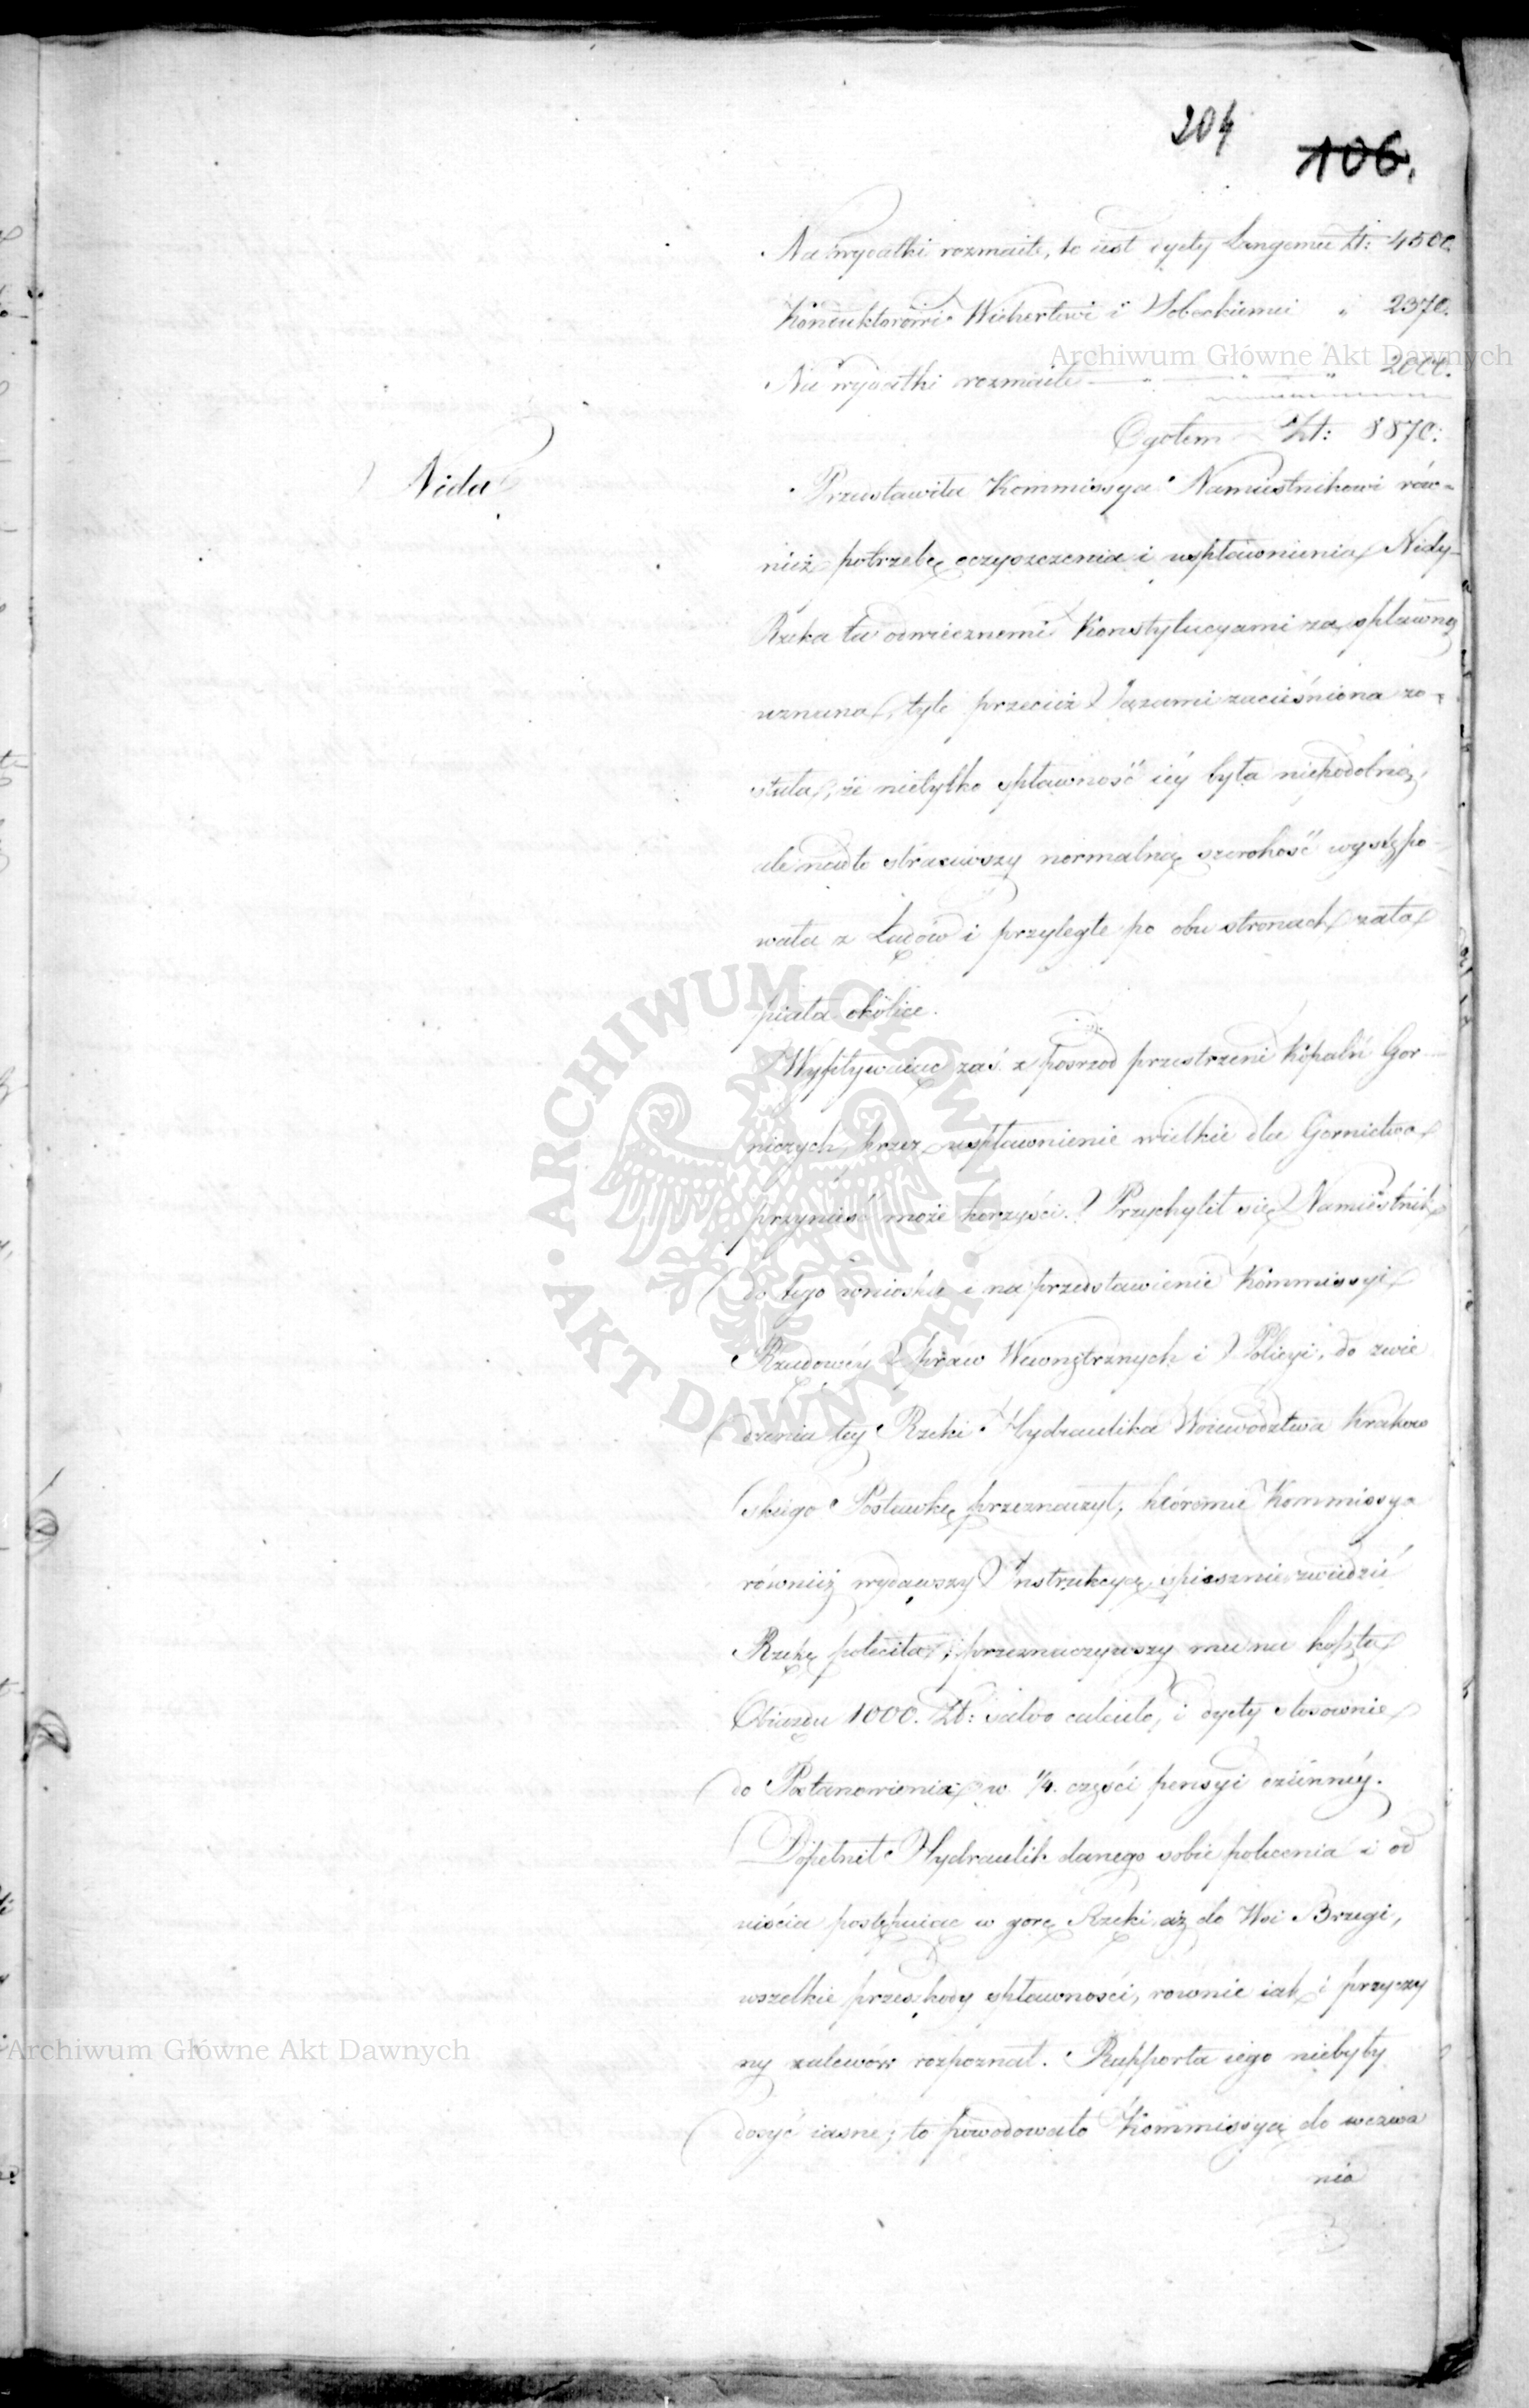 204
106.
Na wydatki rozmaite, to iest dyety Langemu Zł: 4500.
Konduktorowi Wichertowi i Sobeckiemu " 2370.
Na wydatki rozmaite — " — " — " 2000.
Ogołem Zł: 8870:
Nida
Przedstawiła Kommissya Namiestnikowi rów-
nież potrzebę oczyszczenia i uspławnienia Nidy-
Rzeka ta odwiecznemi Konstytucyami za spławną
uznana, tyle przecież Jazami zacieśniona zo-
stała, że nietylko spławność iéy była niepodobną,
ale nadto straciwszy normalną szerokość występo-
wała z Lądów i przyległe po obu stronach zata
piała okolice.
Wypływaiąc zaś z pośrzod przestrzeni Kopalń Gor-
niczych, przez uspławnienie wielkie dla Gornictwa
przynieść może korzyści. Przychylił się Namiestnik
do tego wniosku i na przedstawienie Kommissyi
Rządowéy Spraw Wewnętrznych i Policyi, do zwie
dzenia tey Rzeki Hydraulika Woiewództwa Krakow
skiego Postawkę przeznaczył, któremu Kommissya
również wydawszy Instrukcyą, spiesznie zwiedzić
Rzekę poleciła, przeznaczywszy mu na koszta
Obiazdu 1000. Zł: salvo calculo, i dyety stosownie
do Postanowienia w 1/4. części pensyi dziennéy.
Dopełnił Hydraulik danego sobie polecenia i od
uiścia postępuiąc w gorę Rzeki aż do Wsi Brzegi,
wszelkie przeszkody spławności, rownie iak i przyczy
ny zalewów rozpoznał. Rapporta iego niebyły
dosyć iasne; to powodowało Kommissyą do wezwa
nia
Archiwum Główne Akt Dawnych
ARCHIWUM GŁÓWNE · AKT DAWNYCH ·
Archiwum Główne Akt Dawnych